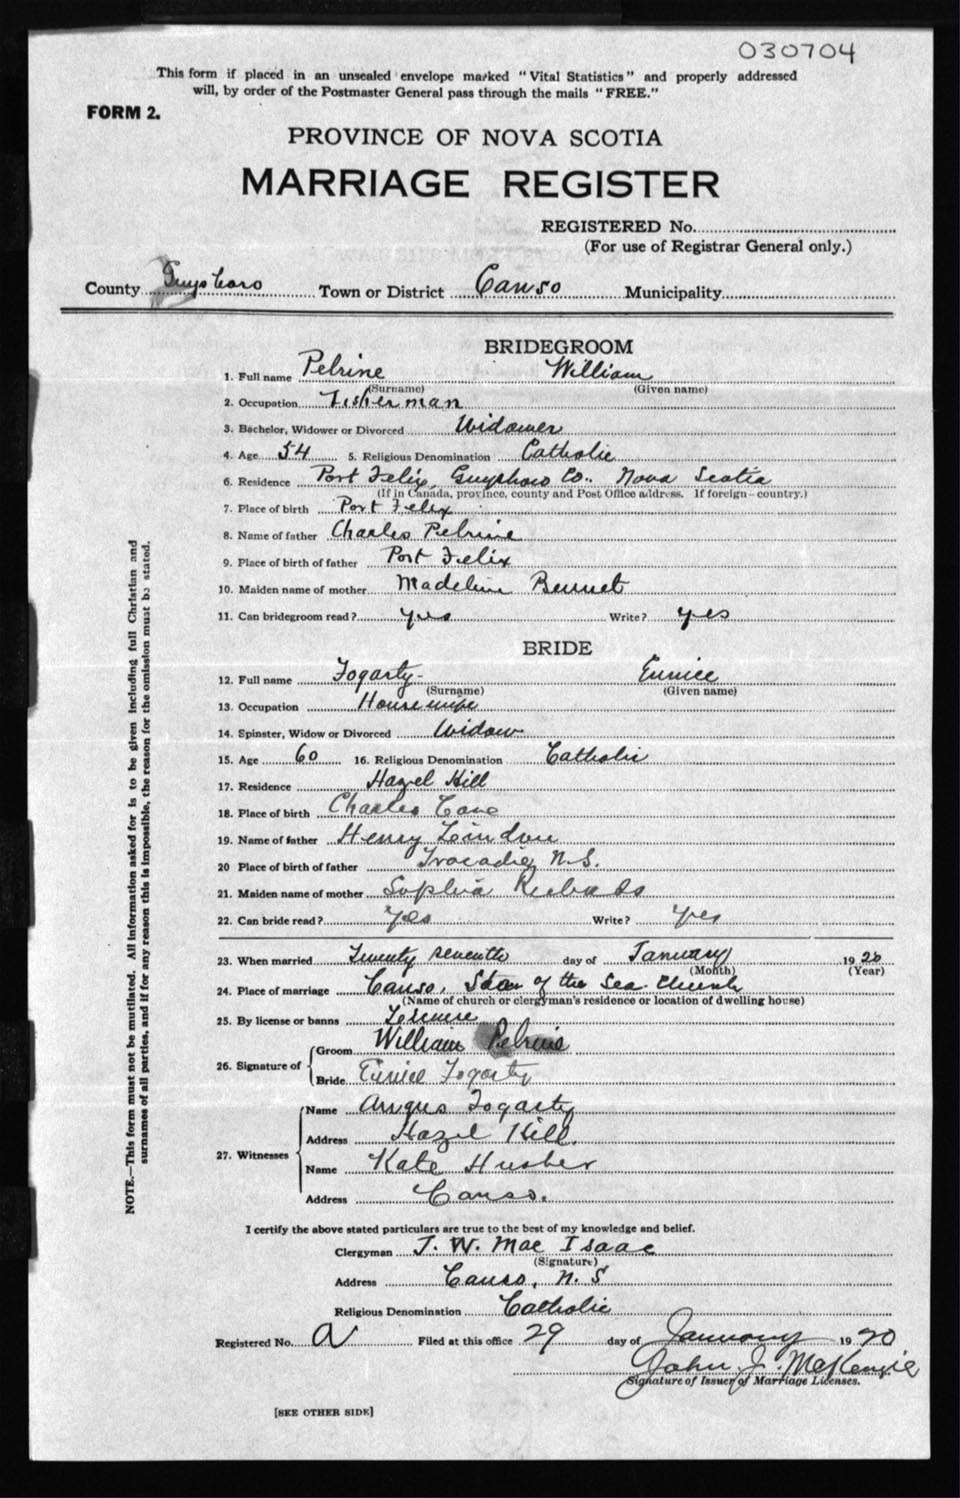 030704
This form if placed in an unsealed envelope marked "Vital Statistics" and properly addressed
will, by order of the Postmaster General pass through the mails "FREE."
FORM 2.
PROVINCE OF NOVA SCOTIA
MARRIAGE REGISTER
REGISTERED No.
(For use of Registrar General only.)
County Guysboro Town or District Canso Municipality
BRIDEGROOM
1. Full name Pelrine William
(Surname) (Given name)
2. Occupation Fisherman
3. Bachelor, Widower or Divorced Widower
4. Age 54 5. Religious Denomination Catholic
6. Residence Port Felix, Guysboro Co., Nova Scotia
(If in Canada, province, county and Post Office address. If foreign—country.)
7. Place of birth Port Felix
8. Name of father Charles Pelrine
9. Place of birth of father Port Felix
10. Maiden name of mother Madeline Bennet
11. Can bridegroom read? yes Write? yes
BRIDE
12. Full name Fogarty Eunice
(Surname) (Given name)
13. Occupation Housewife
14. Spinster, Widow or Divorced Widow
15. Age 60 16. Religious Denomination Catholic
17. Residence Hazel Hill
18. Place of birth Charles Cove
19. Name of father Henry
20 Place of birth of father Tracadie, N.S.
21. Maiden name of mother Sophia
22. Can bride read? Yes Write? Yes
23. When married Twenty seventh day of January 1920
(Month) (Year)
24. Place of marriage Canso, Star of the Sea Church
(Name of church or clergyman's residence or location of dwelling house)
25. By license or banns License
26. Signature of Groom William Pelrine
Bride Eunice Fogarty
27. Witnesses Name Angus Fogarty
Address Hazel Hill.
Name Kate
Address Canso.
I certify the above stated particulars are true to the best of my knowledge and belief.
Clergyman J. W. Mac Isaac
(Signature)
Address Canso, N. S
Religious Denomination Catholic
Registered No. a Filed at this office 29 day of January 1920
John J. McKenzie
Signature of Issuer of Marriage Licenses.
[SEE OTHER SIDE]
NOTE.—This form must not be mutilated. All information asked for is to be given including full Christian and
surnames of all parties, and if for any reason this is impossible, the reason for the omission must be stated.